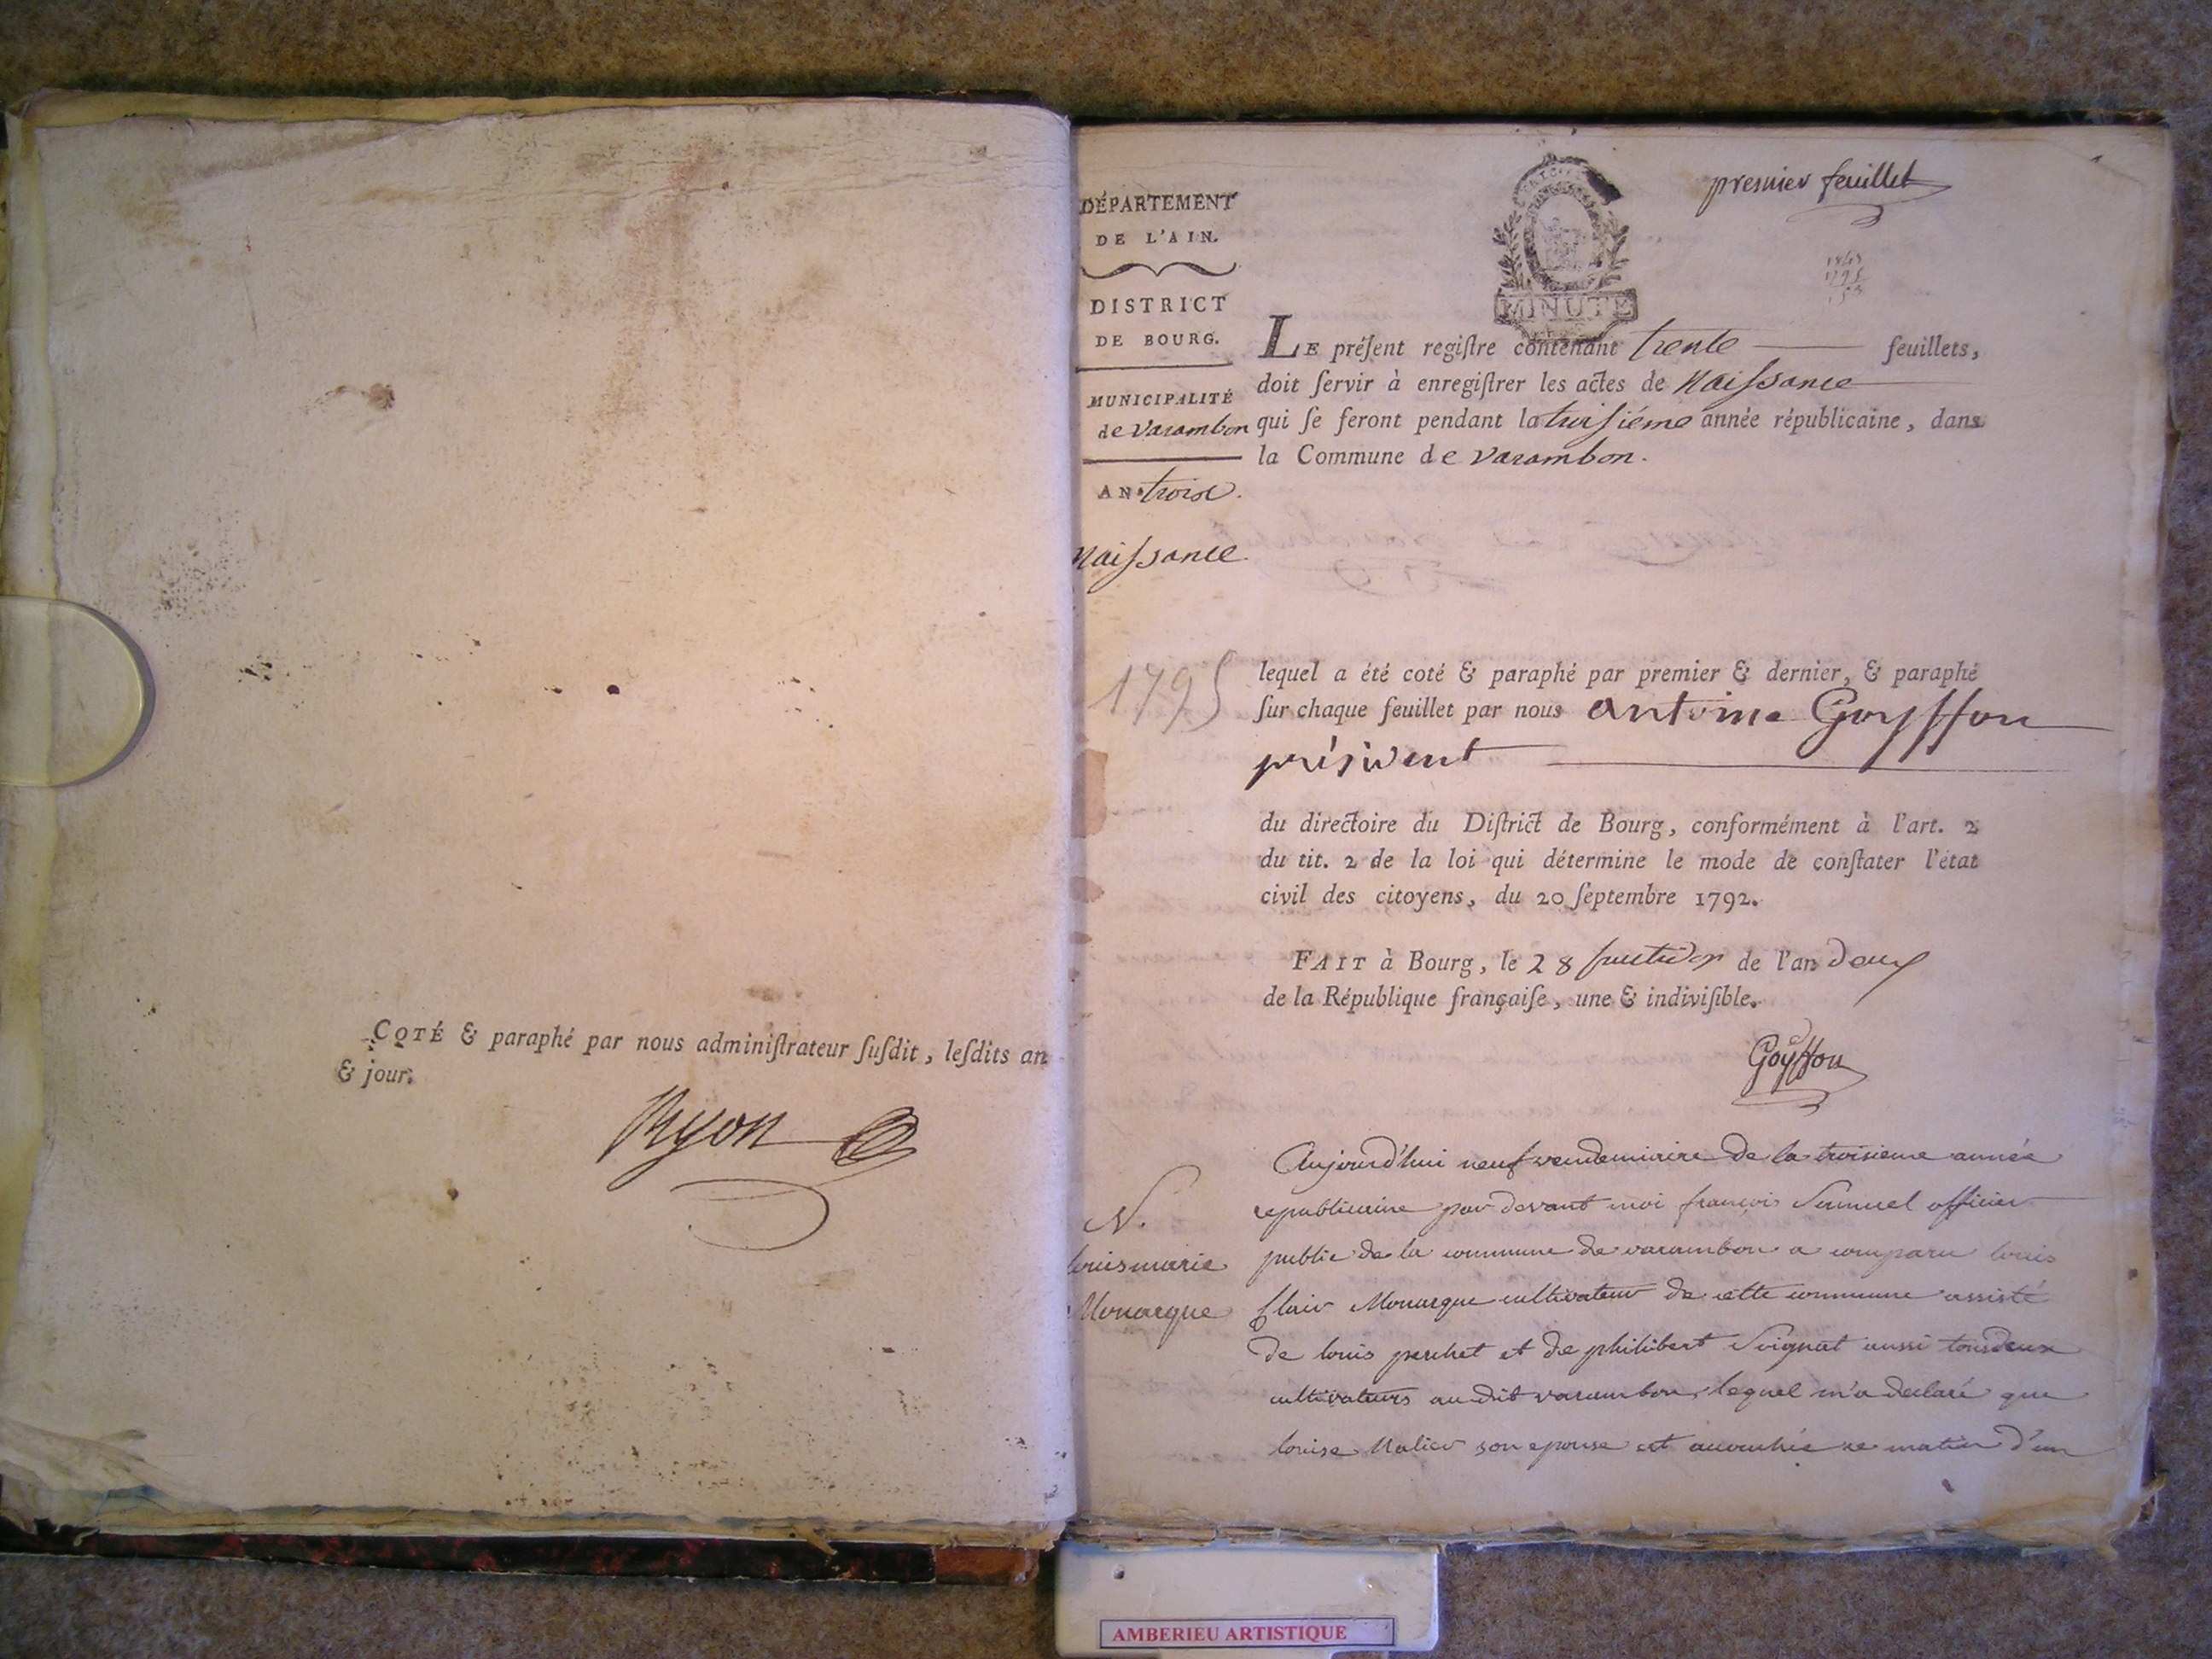 COTÉ & paraphé par nous adminiſtrateur ſuſdit, leſdits an
& jour.
Ryon
premier feuillet
MINUTE
DÉPARTEMENT
DE L'AIN.
DISTRICT
DE BOURG.
MUNICIPALITÉ
de Varambon
AN troise.
Naiſsance
1795
LE préſent regiſtre contenant trente feuillets,
doit ſervir à enregiſtrer les actes de Naiſsance
qui ſe feront pendant la troiſiéme année républicaine, dans
la Commune de Varambon.
lequel a été coté & paraphé par premier & dernier, & paraphé
ſur chaque feuillet par nous antoine Goyffon
président
du directoire du Diſtrict de Bourg, conformément à l'art. 2
du tit. 2 de la loi qui détermine le mode de conſtater l'état
civil des citoyens, du 20 ſeptembre 1792.
FAIT à Bourg, le 28 fructidor de l'an deux
de la République françaiſe, une & indiviſible.
Goyffon
N.
louis marie
Monarque
Aujourd'hui neuf vendemiaire de la troisieme année
republicaine par devant moi françois Samuel officier
public de la commune de varambon a comparu louis
clair Monarque cultivateur de cette commune assisté
de louis perchet et de philibert Soignat aussi tous deux
cultivateurs au dit varambon, lequel m'a declaré que
louise Malier son epouse est accouchée ce matin d'un
AMBERIEU ARTISTIQUE